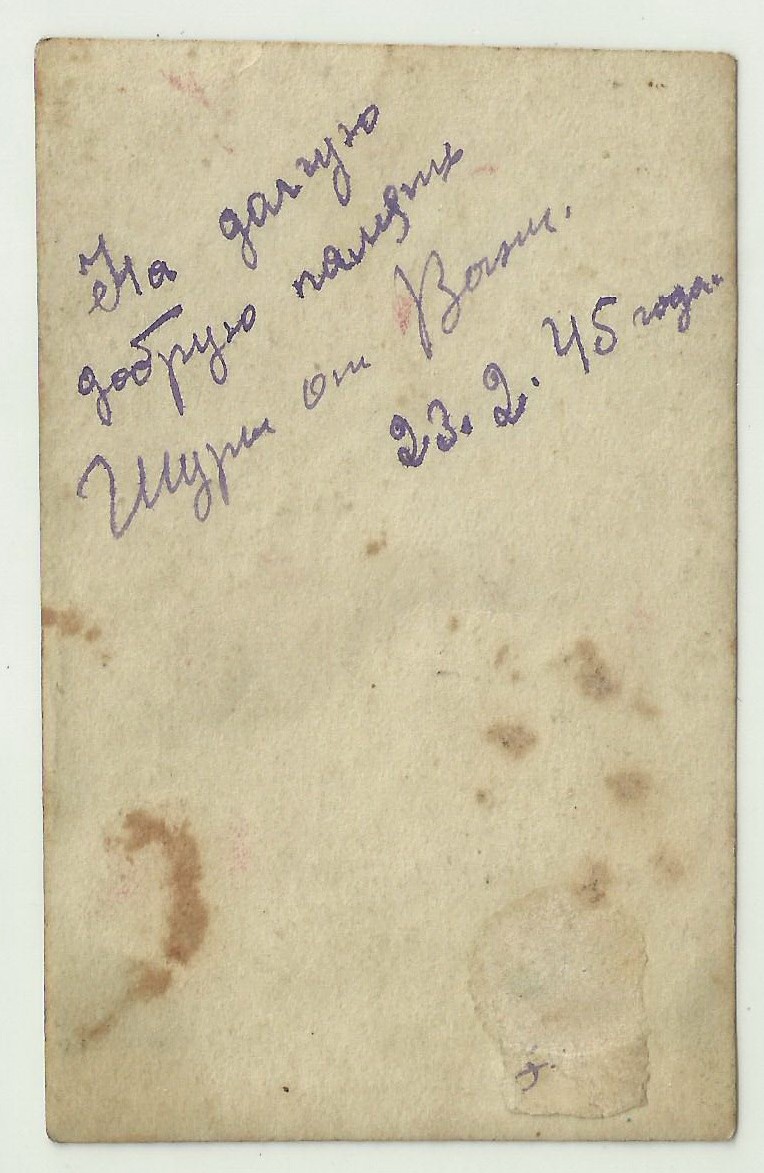 На долгую
добрую память
Шуры от Вани.
23. 2. 45 года.